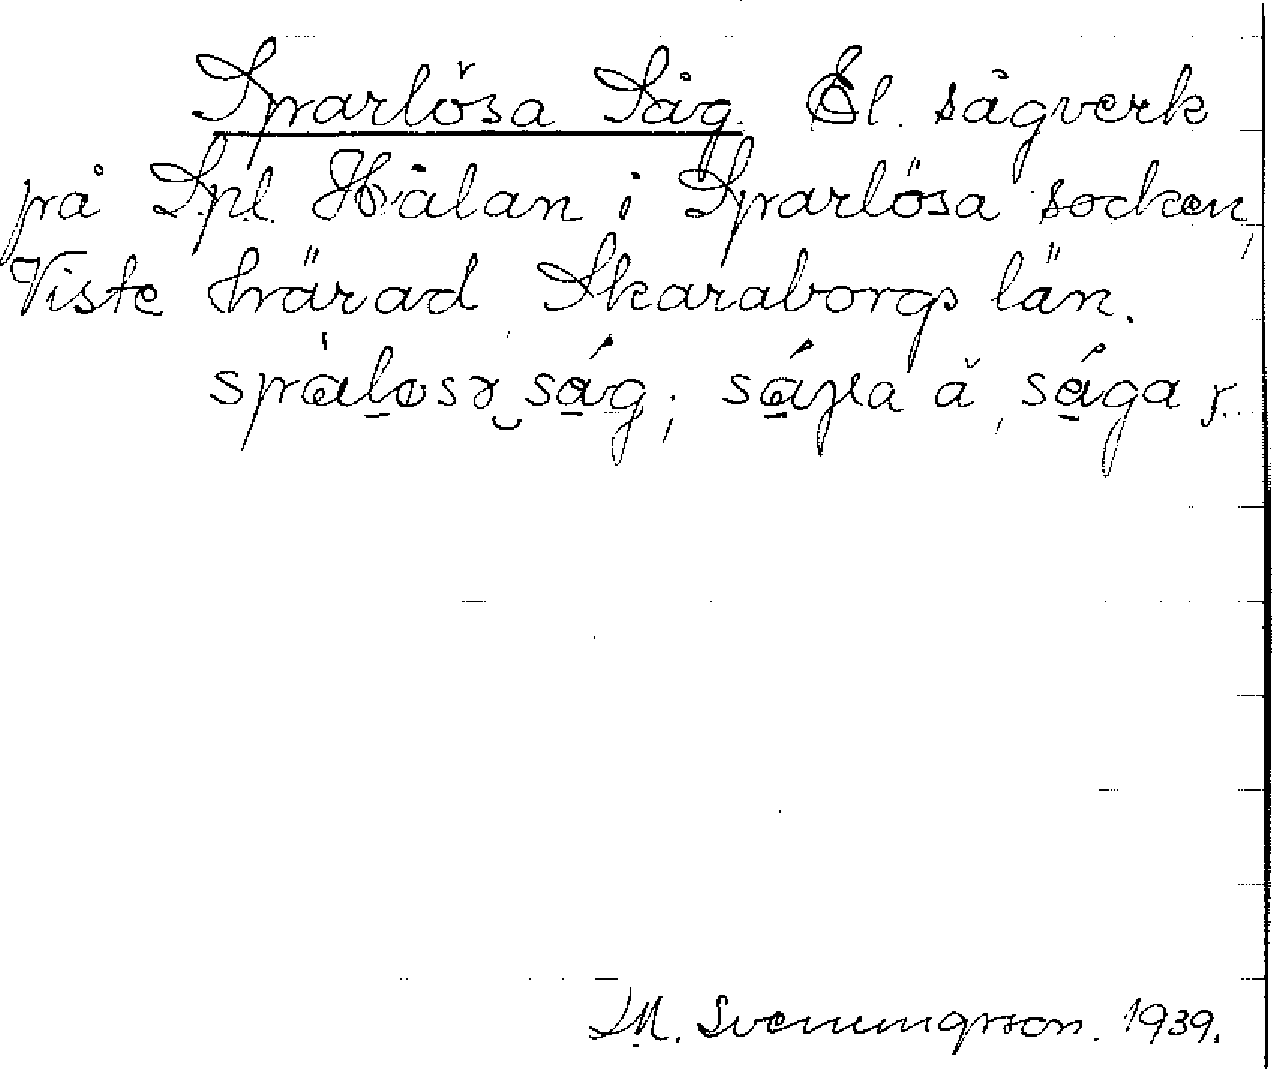 Sparlösa Såg. El. sågverk
på Spl. Hålan i Sparlösa socken,
Viste härad Skaraborgs län.
spàlosa ság; 
M. Svenungsson. 1939.